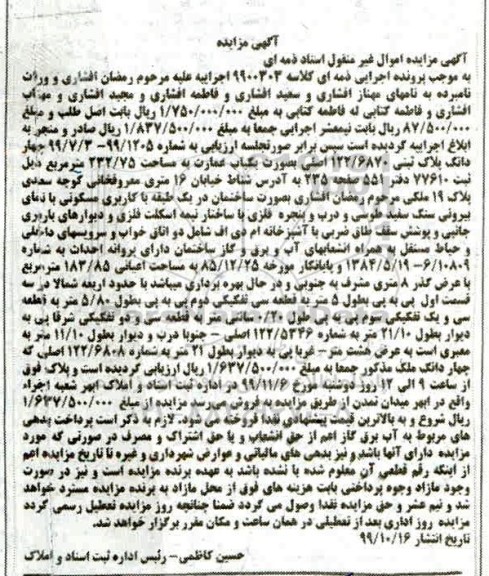 آگهی مزایده
آگهی مزایده اموال غیر منقول اسناد ذمه ای
به موجب پرونده اجرایی ذمه ای کلاسه ۹۹۰۰۳۰۳ اجراییه علیه مرحوم رمضان افشاری و وراث
نامبرده به نامهای مهناز افشاری و سعید افشاری و فاطمه افشاری و مجید افشاری و مهتاب
افشاری و فاطمه کتابی له فاطمه کتابی به مبلغ ۱/۷۵۰/۰۰۰/۰۰۰ ریال بابت اصل طلب و مبلغ
۸۷/۵۰۰/۰۰۰ ریال بابت نیمعشر اجرایی جمعا به مبلغ ۱/۸۳۷/۵۰۰/۰۰۰ ریال صادر و منجر به
ابلاغ اجراییه گردیده است سپس برابر صورتجلسه ارزیابی به شماره ۹۹۰۱۲۰۵- ۹۹/۷/۳ چهار
دانگ پلاک ثبتی ۱۲۲/۶۸۷۰ اصلی بصورت یکباب عمارت به مساحت ۲۳۲/۷۵ مترمربع ذیل
ثبت ۷۷۶۱۰ دفتر ۵۵۱ صفحه ۲۳۵ به آدرس شناط خیابان ۱۶ متری معروفخانی کوچه سعدی
پلاک ۱۹ ملکی مرحوم رمضان افشاری بصورت ساختمان در یک طبقه با کاربری مسکونی با نمای
بیرونی سنگ سفید طوسی و درب و پنجره فلزی با ساختار نیمه اسکلت فلزی و دیوارهای باربری
جانبی و پوشش سقف طاق ضربی با آشپزخانه ام دی اف شامل دو اتاق خواب و سرویسهای داخلی
و حیاط مستقل به همراه انشعابهای آب و برق و گاز ساختمان دارای پروانه احداث به شماره
۶/۱۰۸۰۹- ۱۳۸۴/۵/۱۹ و پایانکار مورخه ۸۵/۱۲/۲۵ به مساحت اعیانی ۱۸۳/۸۵ مترمربع
با عرض گذر ۸ متری مشرف به جنوبی و در حال بهره برداری میباشد با حدود اربعه شمالا در سه
قسمت اول پی به پی بطول ۵ متر به قطعه سی تفکیکی دوم پی به پی بطول ۵/۸۰ متر به قطعه
سی و یک تفکیکی سوم پی به پی طول ۰/۲۰ سانتی متر به قطعه سی و دو تفکیکی شرقا پی به
دیوار بطول ۲۱/۱۰ متر به شماره ۱۲۲/۵۳۴۶ اصلی- جنوبا درب و دیوار بطول ۱۱/۱۰ متر به
معبری است به عرض هشت متر- غربا پی به دیوار بطول ۲۱ متر به شماره ۱۲۲/۶۸۰۸ اصلی که
چهار دانگ ملک مذکور جمعا به مبلغ ۱/۶۳۷/۵۰۰/۰۰۰ ریال ارزیابی گردیده است و پلاک فوق
از ساعت ۹ الی ۱۲ روز دوشنبه مورخ ۹۹/۱۱/۶ در اداره ثبت اسناد و املاک ابهر شعبه اجراء
واقع در ابهر میدان تمدن از طریق مزایده به فروش می رسد مزایده از مبلغ ۱/۶۳۷/۵۰۰/۰۰۰
ریال شروع و به بالاترین قیمت پیشنهادی نقدا فروخته می شود. لازم به ذکر است پرداخت بدهی
های مربوط به آب برق گاز اعم از حق انشعاب و یا حق اشتراک و مصرف در صورتی که مورد
مزایده دارای آنها باشد و نیز بدهی های مالیاتی و عوارض شهرداری و غیره تا تاریخ مزایده اعم
از اینکه رقم قطعی آن معلوم شده یا نشده باشد به عهده برنده مزایده است و نیز در صورت
وجود مازاد وجوه پرداختی بابت هزینه های فوق از محل مازاد به برنده مزایده مسترد خواهد
شد و نیم عشر و حق مزایده نقدا وصول می گردد ضمنا چنانچه روز مزایده تعطیل رسمی گردد
مزایده روز اداری بعد از تعطیلی در همان ساعت و مکان مقرر برگزار خواهد شد.
تاریخ انتشار ۹۹/۱۰/۱۶
حسین کاظمی- رئیس اداره ثبت اسناد و املاک